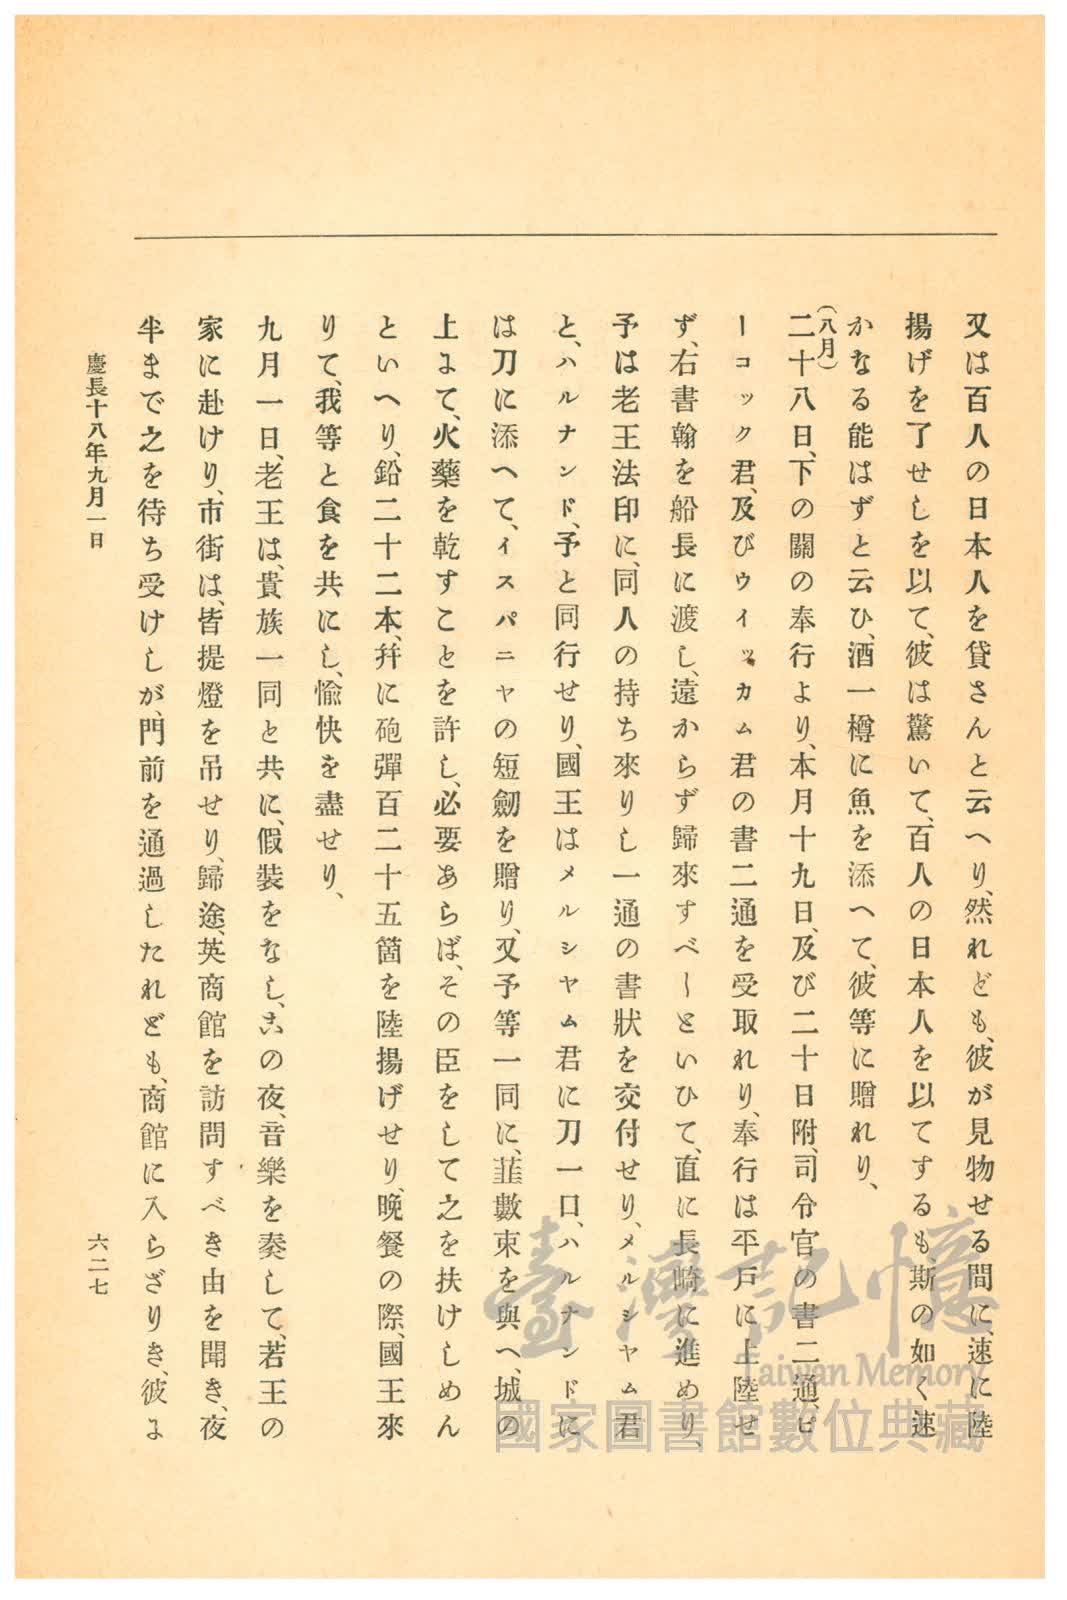 又は百人の日本人を貸さんと云へり、然れども、彼が見物せる間に、速に陸
揚げを了せしを以て、彼は驚いて、百人の日本人を以てするも斯の如く速
かなる能はずと云ひ、酒一樽に魚を添へて、彼等に贈れり、
(八月)
二十八日、下の關の奉行より、本月十九日、及び二十日附、司令官の書二通、ピ
ーコック君、及びウイッカム君の書二通を受取れり、奉行は平戸に上陸せ
ず、右書翰を船長に渡し、遠からず歸來すべしといひて、直に長崎に進めり、
予は老王法印に、同人の持ち來りし一通の書狀を交付せり、メルシヤム君
と、ハルナンド、予と同行せり、國王はメルシヤム君に刀一口、ハルナンドに
は刀に添へて、イスパニヤの短劒を贈り、又予等一同に、韮數束を與へ、城の
上にて、火藥を乾すことを許し、必要あらば、その臣をして之を扶けしめん
といへり、鉛二十二本、幷に砲彈百二十五箇を陸揚げせり、晩餐の際、國王來
りて、我等と食を共にし、愉快を盡せり、
九月一日、老王は、貴族一同と共に、假裝をなし、この夜、音樂を奏して、若王の
家に赴けり、市街は、皆提燈を吊せり、歸途、英商館を訪問すべき由を聞き、夜
半まで之を待ち受けしが、門前を通過したれども、商館に入らざりき、彼に
慶長十八年九月一日
六二七
臺灣記憶
Taiwan Memory
國家圖書館數位典藏